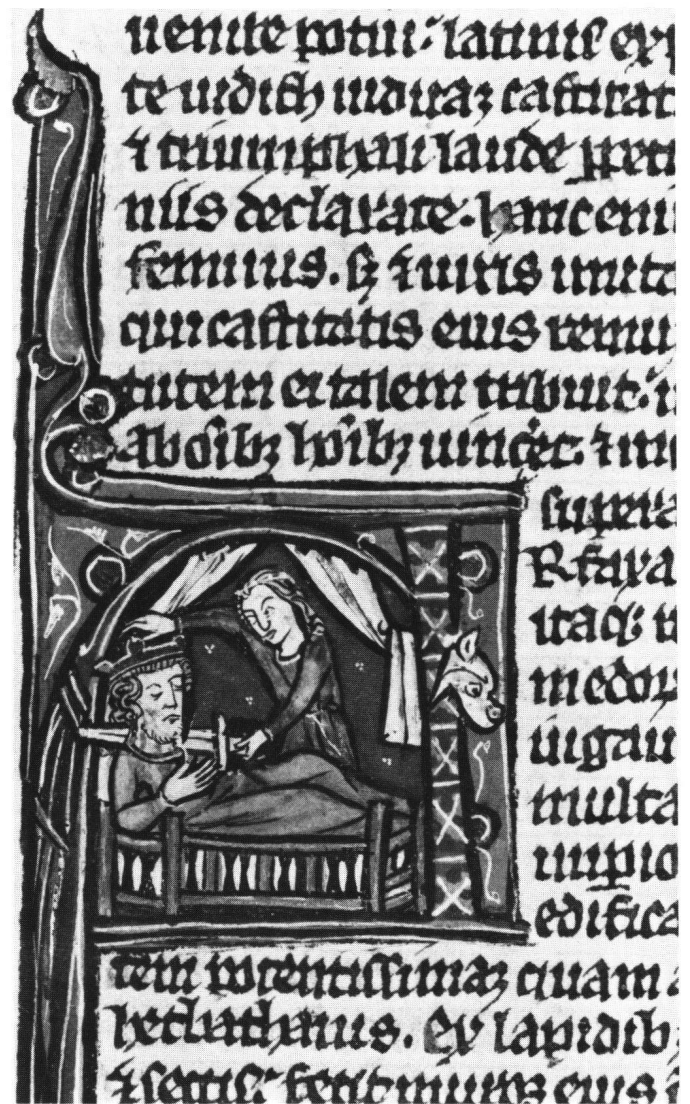 uenire potui: latinis exp
te iudith uiduaꝫ castitat
⁊ triumphali laude ꝑpet
niis declarate. hanc eni
feminis. sꝫ ⁊ uiris imita
qui castitatis eius remu
tutem ei talem tribuit. u
ab oībꝫ hoībꝫ uinceret. ⁊ in
supera
Rfaxa
itaqꝫ r
medor
iugau
multa
imꝑio
edifica
tem potentissimaꝫ quam a
hecbathanis. Ex lapidibꝫ
⁊ sectis: fecit muros eius